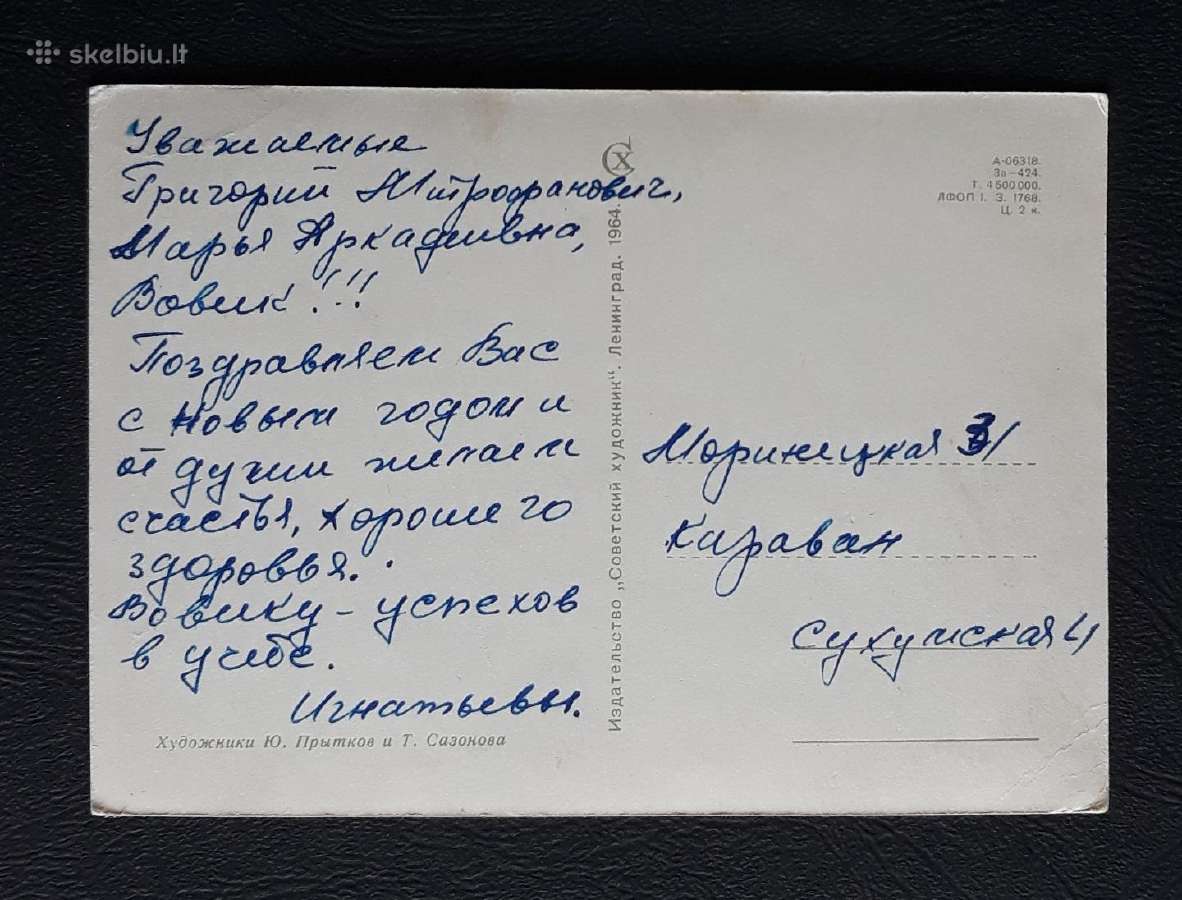 skelbiu.lt
Уважаемые
Григорий Митрофанович,
Марья Аркадиевна,
Вовик!!!
Поздравляем Вас
с Новым годом и
от души желаем
счастья, хорошего
здоровья.
Вовику - успехов
в учебе.
Игнатьевы.
Художники Ю. Прытков и Т. Сазонова
Издательство „Советский художник". Ленинград. 1964.
СХ
А-06318.
За-424.
Т. 4500000.
ЛФОП 1. З. 1768.
Ц. 2 к.
Моринецкая
Караван
Сухумская 4